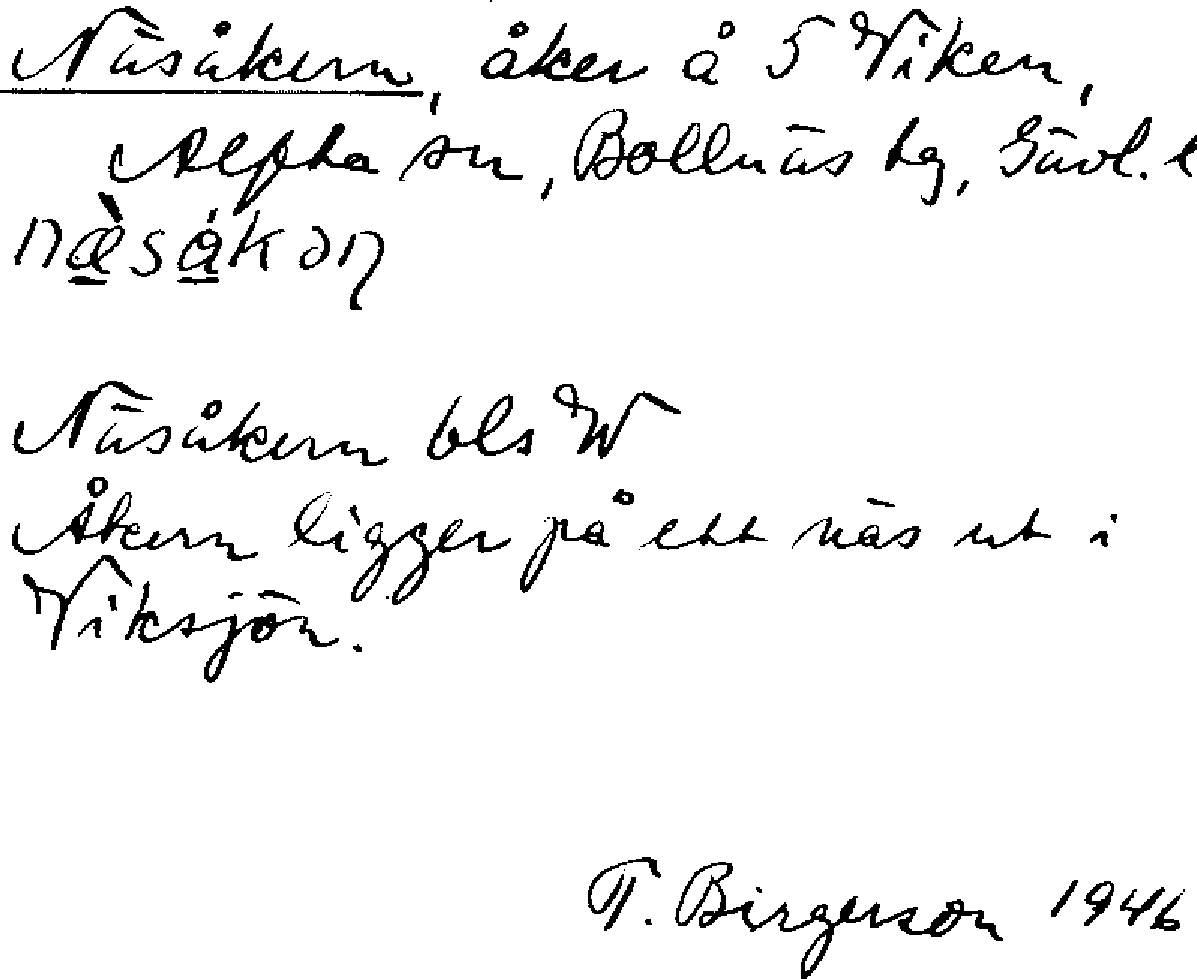 Näsåkern, åker å 5 Viken,
Alfta sn, Bollnäs tg, Gävl. l
næ̀såkəη
Näsåkern bls W
Åkern ligger på ett näs ut i
Viksjön.
T. Birgerson 1946